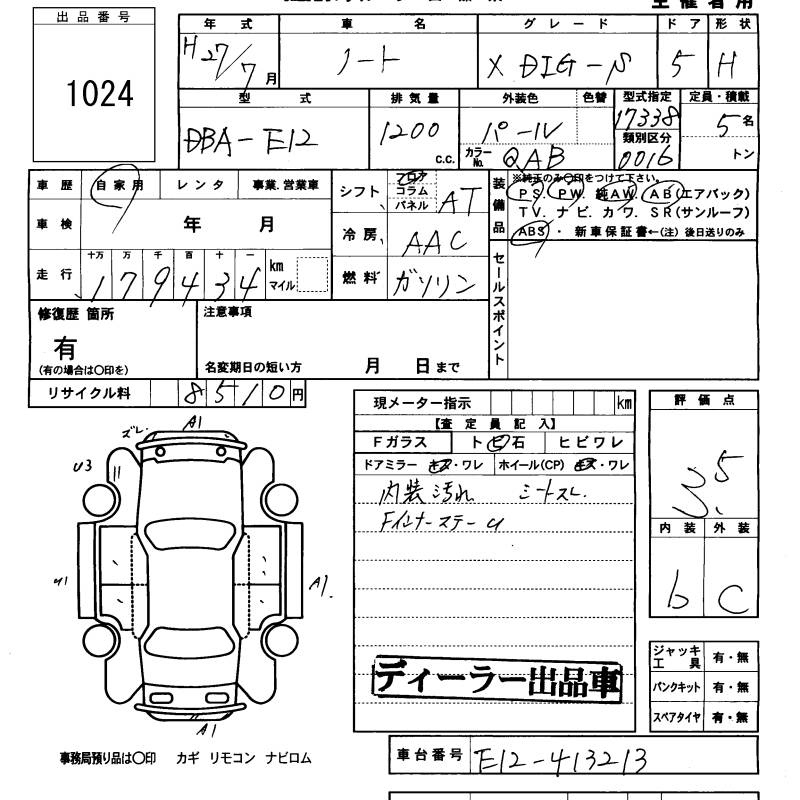 出品番号
1024
年式 車名 グレード ドア 形状
H27/7月 ノート X DIG-S 5 H
型式 排気量 外装色 色替 型式指定 定員・積載
DBA-E12 1200 c.c. パール カラーNo. QAB 17338 類別区分 0016 5名 トン
車歴 自家用 レンタ 事業.営業車
車検 年 月
走行 十万 万 千 百 十 一
179434 km マイル
シフト フロア コラム パネル AT
冷房 AAC
燃料 ガソリン
装備品 ※純正のみ○印をつけて下さい。
PS. PW. 純AW. AB(エアバック)
TV. ナビ. カワ. SR(サンルーフ)
ABS ・ 新車保証書←(注) 後日送りのみ
セールスポイント
修復歴 箇所
有
(有の場合は○印を)
注意事項
名変期日の短い方 月 日まで
リサイクル料 8510円
現メーター指示 km
【査定員記入】
Fガラス トビ石 ヒビワレ
ドアミラー キズ・ワレ ホイール(CP) キズ・ワレ
内装汚れ シートスレ.
FインナーステーU
評価点
3.5
内装 外装
b C
ズレ. A1
U3
A1.
A1
ディーラー出品車
ジャッキ工具 有・無
パンクキット 有・無
スペアタイヤ 有・無
事務局預り品は○印 カギ リモコン ナビロム
車台番号 E12-413213